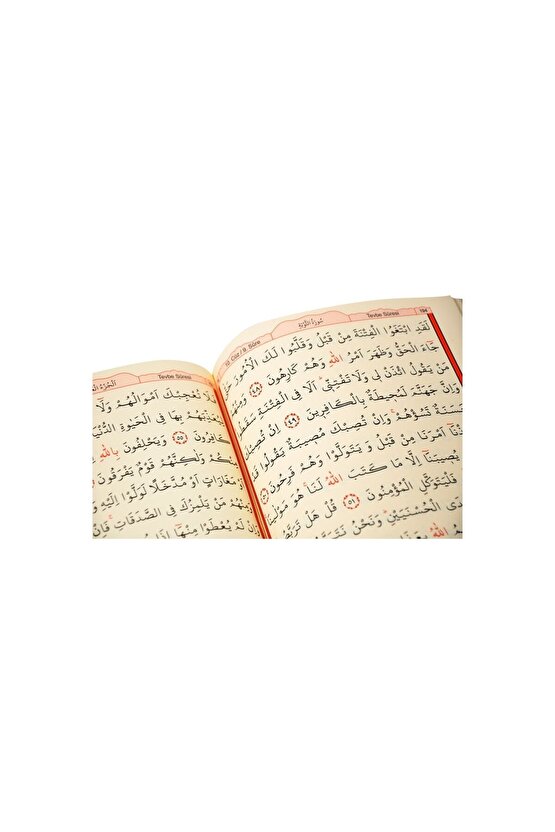 194 Tevbe Sûresi سُورَةُ التَّوْبَةِ 10. Cüz / 9. Sûre
لَقَدِ ابْتَغَوُا الْفِتْنَةَ مِنْ قَبْلُ وَقَلَّبُوا لَكَ الْاُمُورَ
جَٓاءَ الْحَقُّ وَظَهَرَ اَمْرُ اللّٰهِ وَهُمْ كَارِهُونَ ﴿٤٨﴾
مَنْ يَقُولُ ائْذَنْ ل۪ي وَلَا تَفْتِنّ۪ي اَلَا فِي الْفِتْنَةِ
وَاِنَّ جَهَنَّمَ لَمُح۪يطَةٌ بِالْكَافِر۪ينَ ﴿٤٩﴾ اِنْ تُصِبْكَ
تَسُؤْهُمْ وَاِنْ تُصِبْكَ مُص۪يبَةٌ يَقُولُوا
اَمْرَنَا مِنْ قَبْلُ وَيَتَوَلَّوْا وَهُمْ فَرِحُونَ
يُص۪يبَنَٓا اِلَّا مَا كَتَبَ اللّٰهُ لَنَا هُوَ مَوْلٰينَا
فَلْيَتَوَكَّلِ الْمُؤْمِنُونَ ﴿٥١﴾ قُلْ هَلْ
الْحُسْنَيَيْنِ وَنَحْنُ
اللّٰهُ
Tevbe Sûresi
تُعْجِبْكَ اَمْوَالُهُمْ وَلَٓا
بِهَا فِي الْحَيٰوةِ
كَافِرُونَ ﴿٥٥﴾ وَيَحْلِفُونَ بِاللّٰهِ
وَلٰكِنَّهُمْ قَوْمٌ يَفْرَقُونَ
مَغَارَاتٍ اَوْ مُدَّخَلًا لَوَلَّوْا اِلَيْهِ
مَنْ يَلْمِزُكَ فِي الصَّدَقَاتِ
لَمْ يُعْطَوْا مِنْهَٓا اِذَا